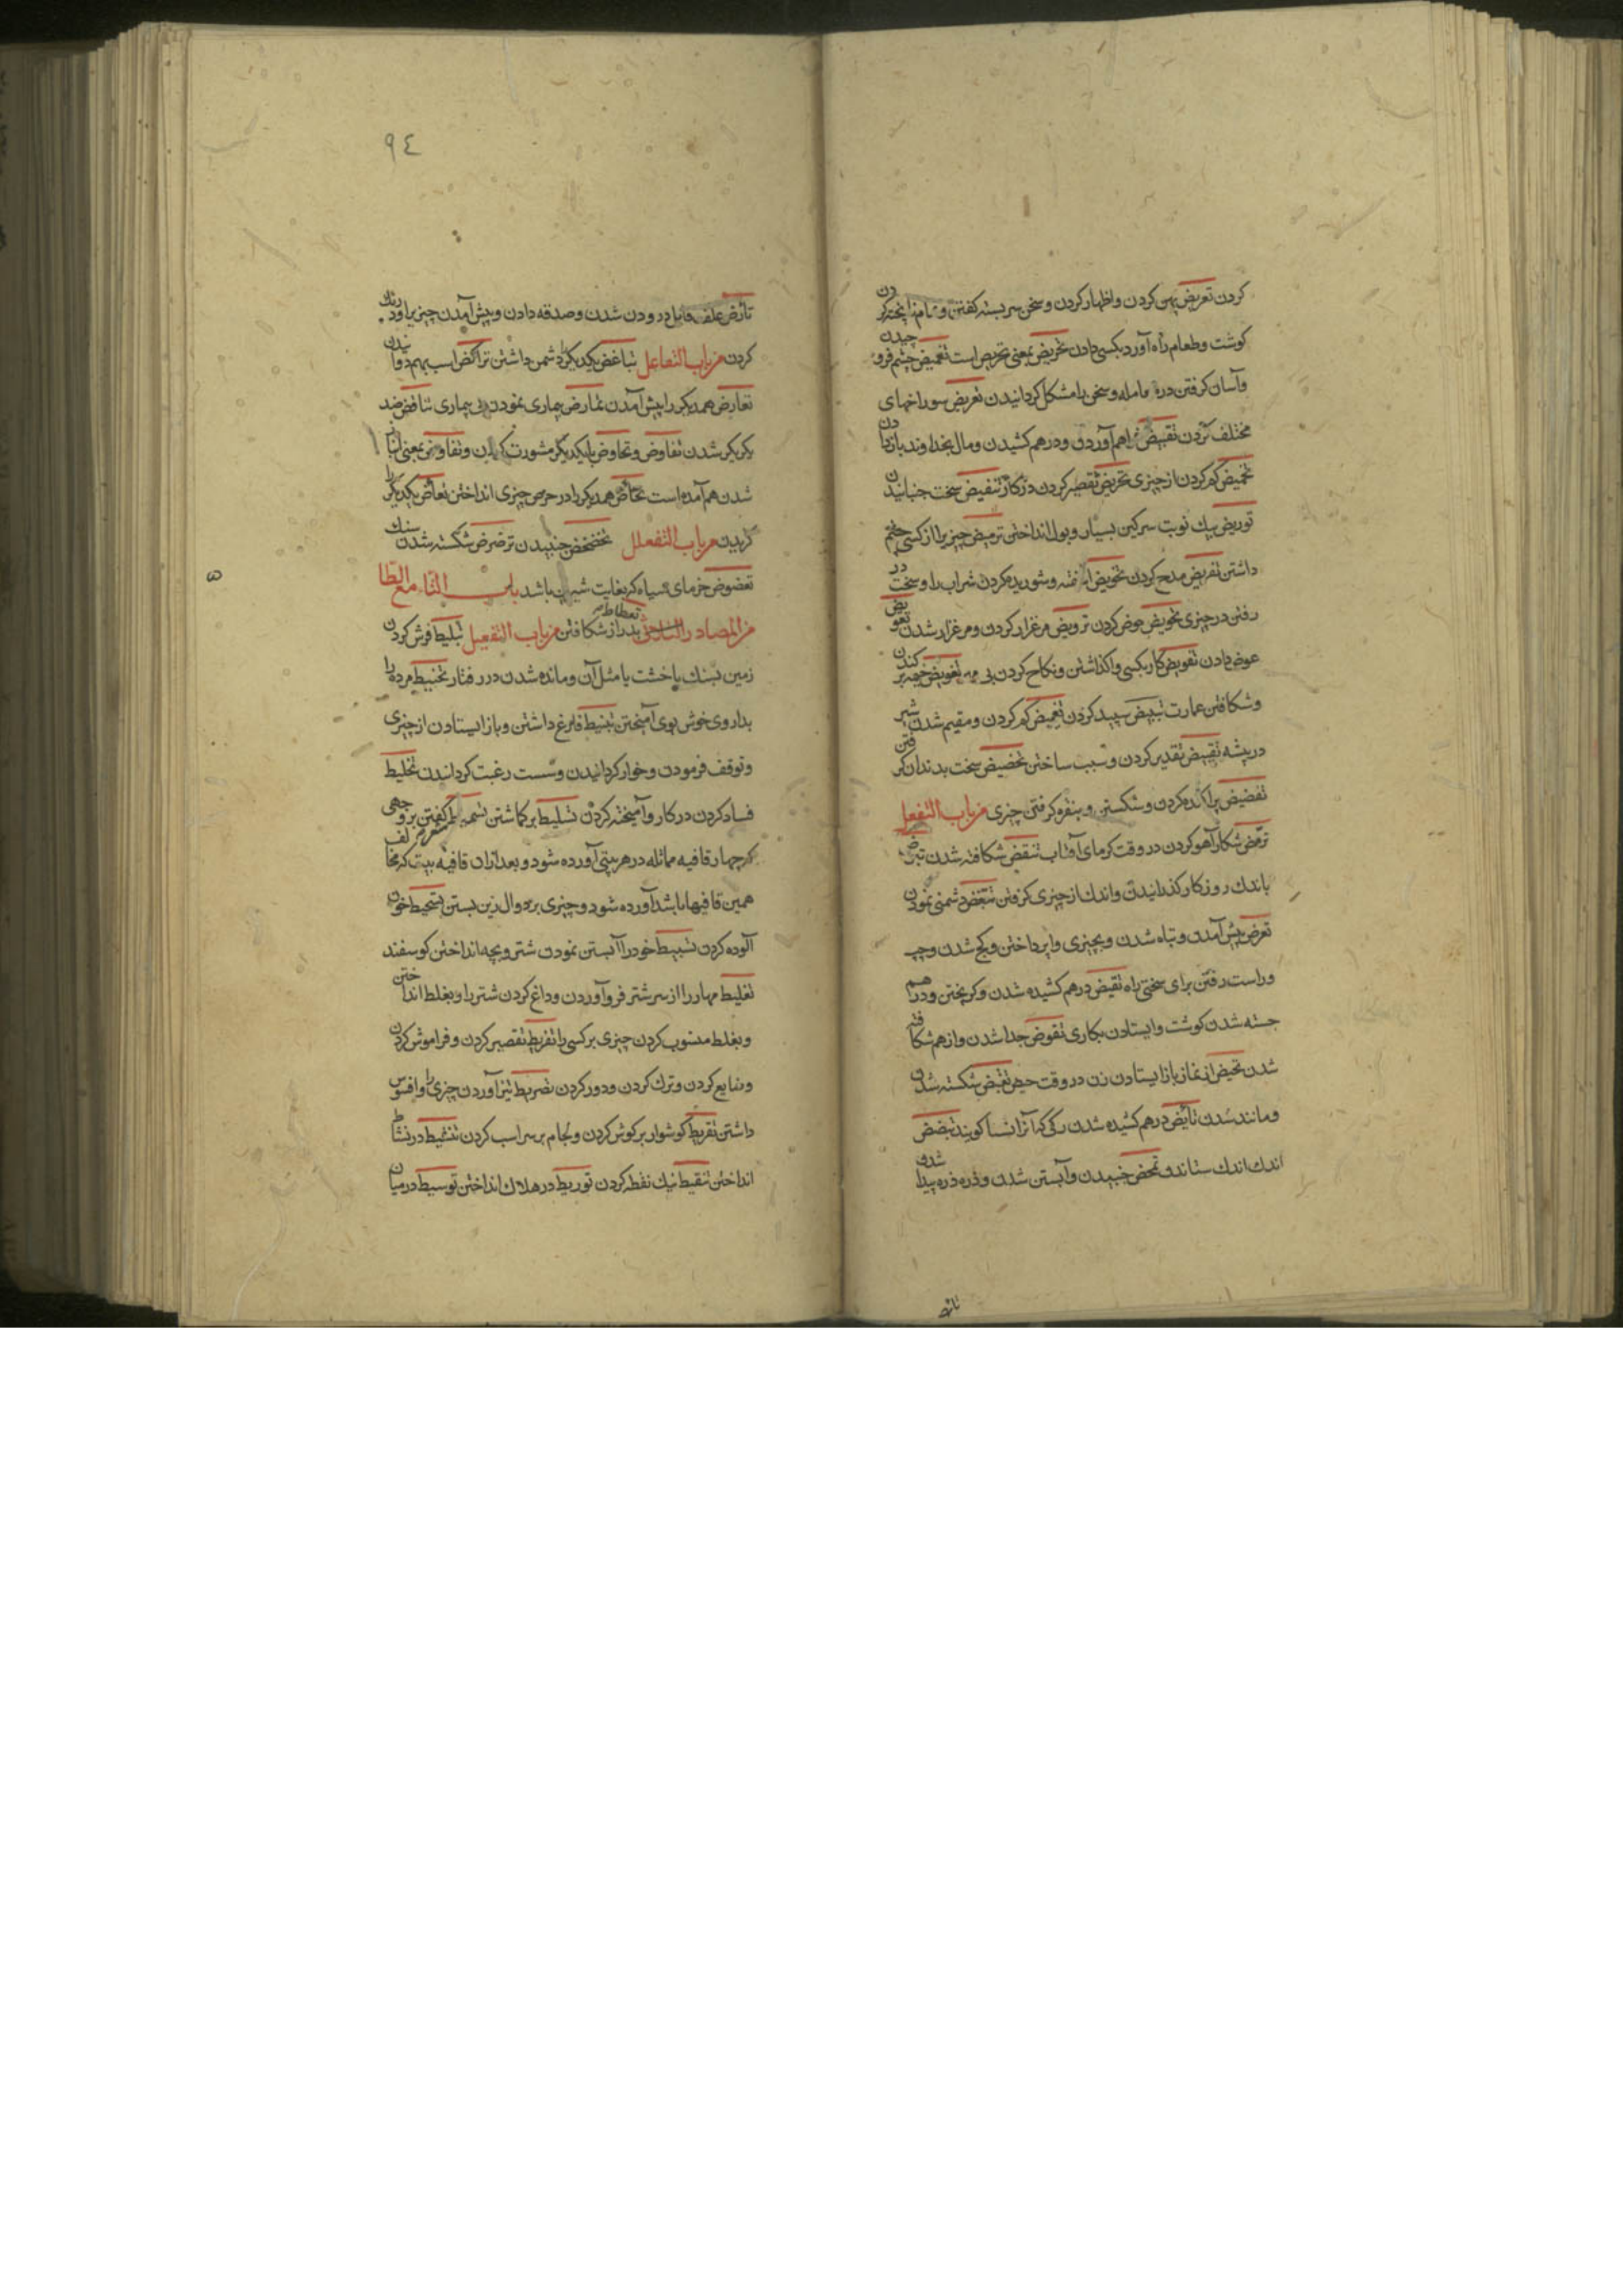 کردن تعریض پهن کردن و اظهار کردن و سخن سربسته گفتن و تمام نا پخته کردن
کوشت و طعام راه آورد بکسی دادن تحریض بمعنی تحریص است تغمیض چشم فرو چیدن
و آسان کرفتن در معامله و سخن را مشکل کردانیدن تعریض سوراخهای
مختلف کردن تقبیض فراهم آوردن و درهم کشیدن و مال بخداوند باز دادن
تخمیض کم کردن از چیزی تحریض تقصیر کردن در کار تنفیض سخت جنبانیدن
توریض بیک نوبت سرکین بسیار و بول انداختن ترمیض چیزیرا از کسی چشم
داشتن تقریض مدح کردن تخویض آمیخته و شوریده کردن شراب را و سخت در
رفتن در چیزی تحویض حوض کردن ترویض مرغزار کردن و مرغزار شدن تعویض
عوض دادن تفویض کار بکسی واکذاشتن و نکاح کردن بی مهر تقویض خیمه بر کندن
و شکافتن عمارت تبییض سپید کردن تغییض کم کردن و مقیم شدن شیر
در بیشه تقییض تقدیر کردن و سبب ساختن تعضیض سخت بدندان کرفتن
تفضیض پراکنده کردن و شکستن و بنقره کرفتن چیزی من باب التفعل
ترمض شکار آهو کردن در وقت کرمای آفتاب تنقض شکافته شدن تبرض
باندک روزکار کذرانیدن و اندک از چیزی کرفتن تبغض دشمنی نمودن
تعرض پیش آمدن و تباه شدن و بچیزی وا پرداختن و کج شدن و چپ
و راست رفتن برای سختی راه تقبض درهم کشیده شدن و کریختن و درهم
جسته شدن کوشت و ایستادن بکاری تقوض جدا شدن و از هم شکافته
شدن تحیض از نماز باز ایستادن زن در وقت حیض تقیض شکسته شدن
و مانند شدن تأبض درهم کشیده شدن رکی که آنرا نسا کویند تبضض
اندک اندک ستاندن تمخض جنبیدن و آبستن شدن و ذره ذره پیدا شدن
تأرض
٩٤
تأرض علف قابل درودن شدن و صدقه دادن و پیش آمدن چیزیرا و درنک
کردن من باب التفاعل تباغض یکدیکر را دشمن داشتن تراکض اسب بهم دوانیدن
تعارض همدیکر را پیش آمدن تمارض بیماری نمودن بی بیماری تناقض ضد
یکدیکر شدن تفاوض و تحاوض با یکدیکر مشورت کردن و تفاوض بمعنی انباز
شدن هم آمده است تحاض همدیکر را در حرص چیزی انداختن تعاض یکدیکر را
کزیدن من باب التفعلل تخضخض جنبیدن ترضرض شکسته شدن سنک
تعضوض خرمای سیاه که بغایت شیرین باشد باب التاء مع الطا
من المصادر الثلاثی تعطاط دراز شکافتن من باب التفعیل تبلیط فرش کردن
زمین بسنک یا خشت یا مثل آن و مانده شدن در رفتار تحنیط مرده را
بداروی خوش بوی آمیختن تثبیط فارغ داشتن و باز ایستادن از چیزی
و توقف فرمودن و خوار کردانیدن و سست رغبت کردانیدن تخلیط
فساد کردن در کار و آمیخته کردن تسلیط برکماشتن تسمیط شعر کفتن بر وجهی
که چهار قافیه مماثله در هر بیتی آورده شود و بعد ازان قافیه بیت که مخالف
همین قافیها باشد آورده شود و چیزی بر دوال زین بستن تشحیط خون
آلوده کردن تسبیط خود را آبستن نمودن شتر و بچه انداختن کوسفند
تعلیط مهار را از سر شتر فرو آوردن و داغ کردن شتر را و بغلط انداختن
و بغلط منسوب کردن چیزی بر کسی را تفریط تقصیر کردن و فراموش کردن
و ضایع کردن و ترک کردن و دور کردن تضریط تیز آوردن چیزی را و افسوس
داشتن تقریط کوشوار بر کوش کردن و لجام بر سر اسب کردن تنشیط در نشاط
انداختن تنقیط نیک نقطه کردن توریط در هلاک انداختن توسیط در میان